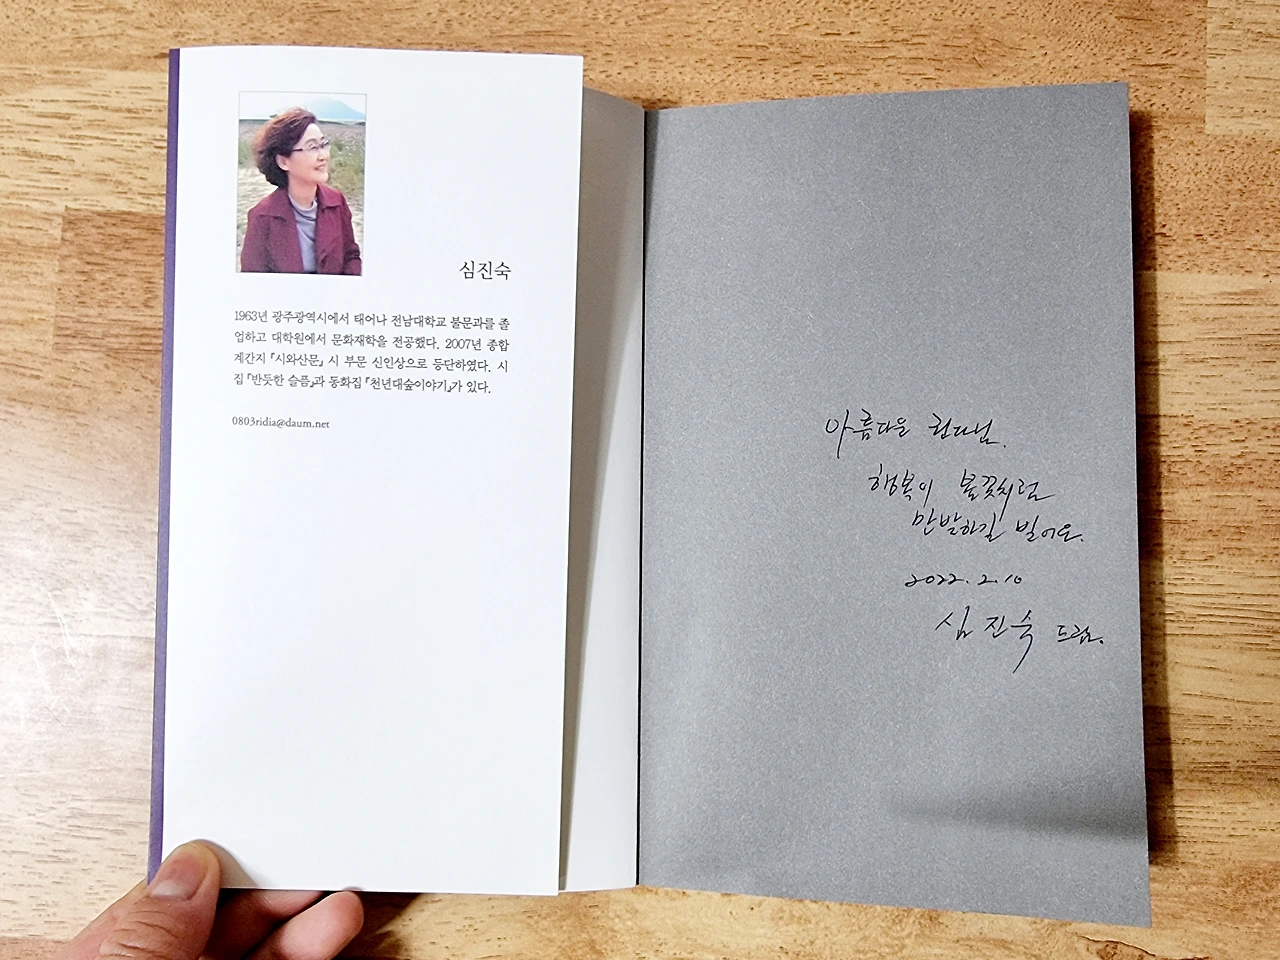 심진숙
1963년 광주광역시에서 태어나 전남대학교 불문과를 졸
업하고 대학원에서 문화재학을 전공했다. 2007년 종합
계간지 『시와산문』 시 부문 신인상으로 등단하였다. 시
집 『반듯한 슬픔』과 동화집 『천년대숲이야기』가 있다.
0803ridia@daum.net
아름다운
행복이 봄꽃처럼
만발하길 빌어요.
2022. 2. 10
심진숙 드림.